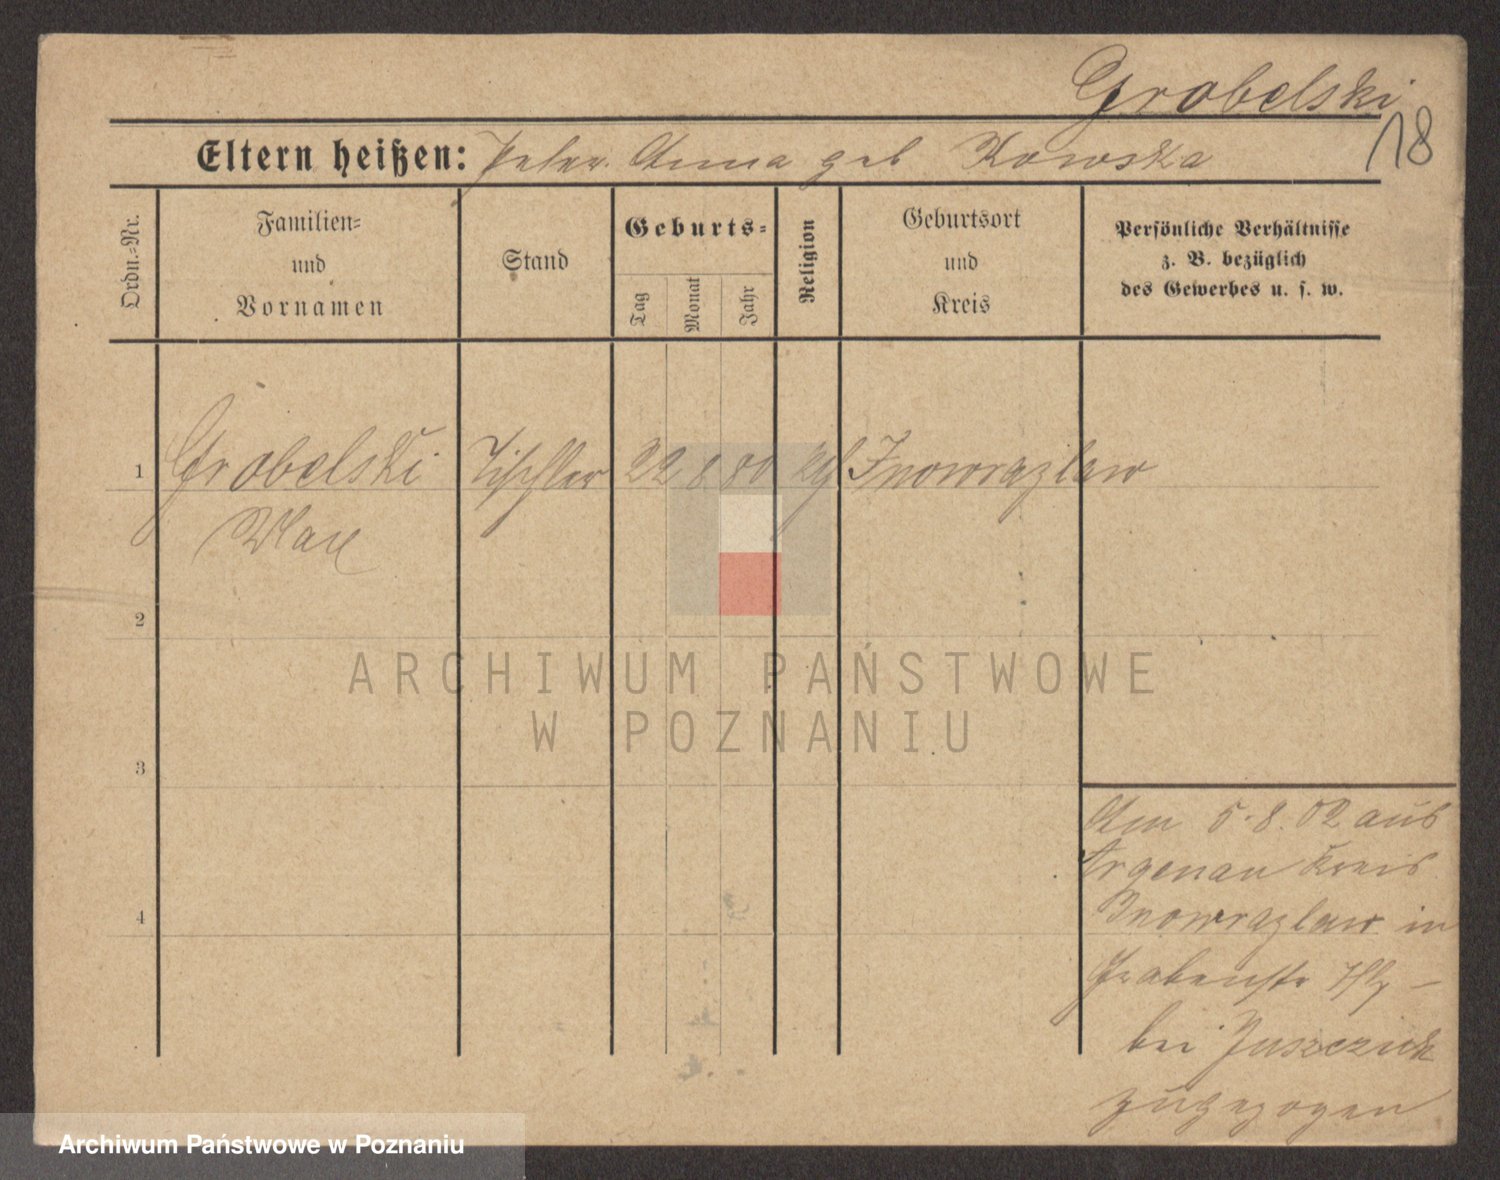 Grobelski
18
Eltern heißen: Peter Anna geb Kowska
Ordn.-Nr.
Familien-
und
Vornamen
Stand
Geburts-
Tag
Monat
Jahr
Religion
Geburtsort
und
Kreis
Persönliche Verhältnisse
z. B. bezüglich
des Gewerbes u. s. w.
1 Grobelski Tischler 22 8 80 Inowrazlaw
Max
2
ARCHIWUM PAŃSTWOWE
W POZNANIU
3
Am 5.8.02 aus
Argenau Kreis
4
Inowrazlaw in
Grabenstr
bei
zugezogen
Archiwum Państwowe w Poznaniu